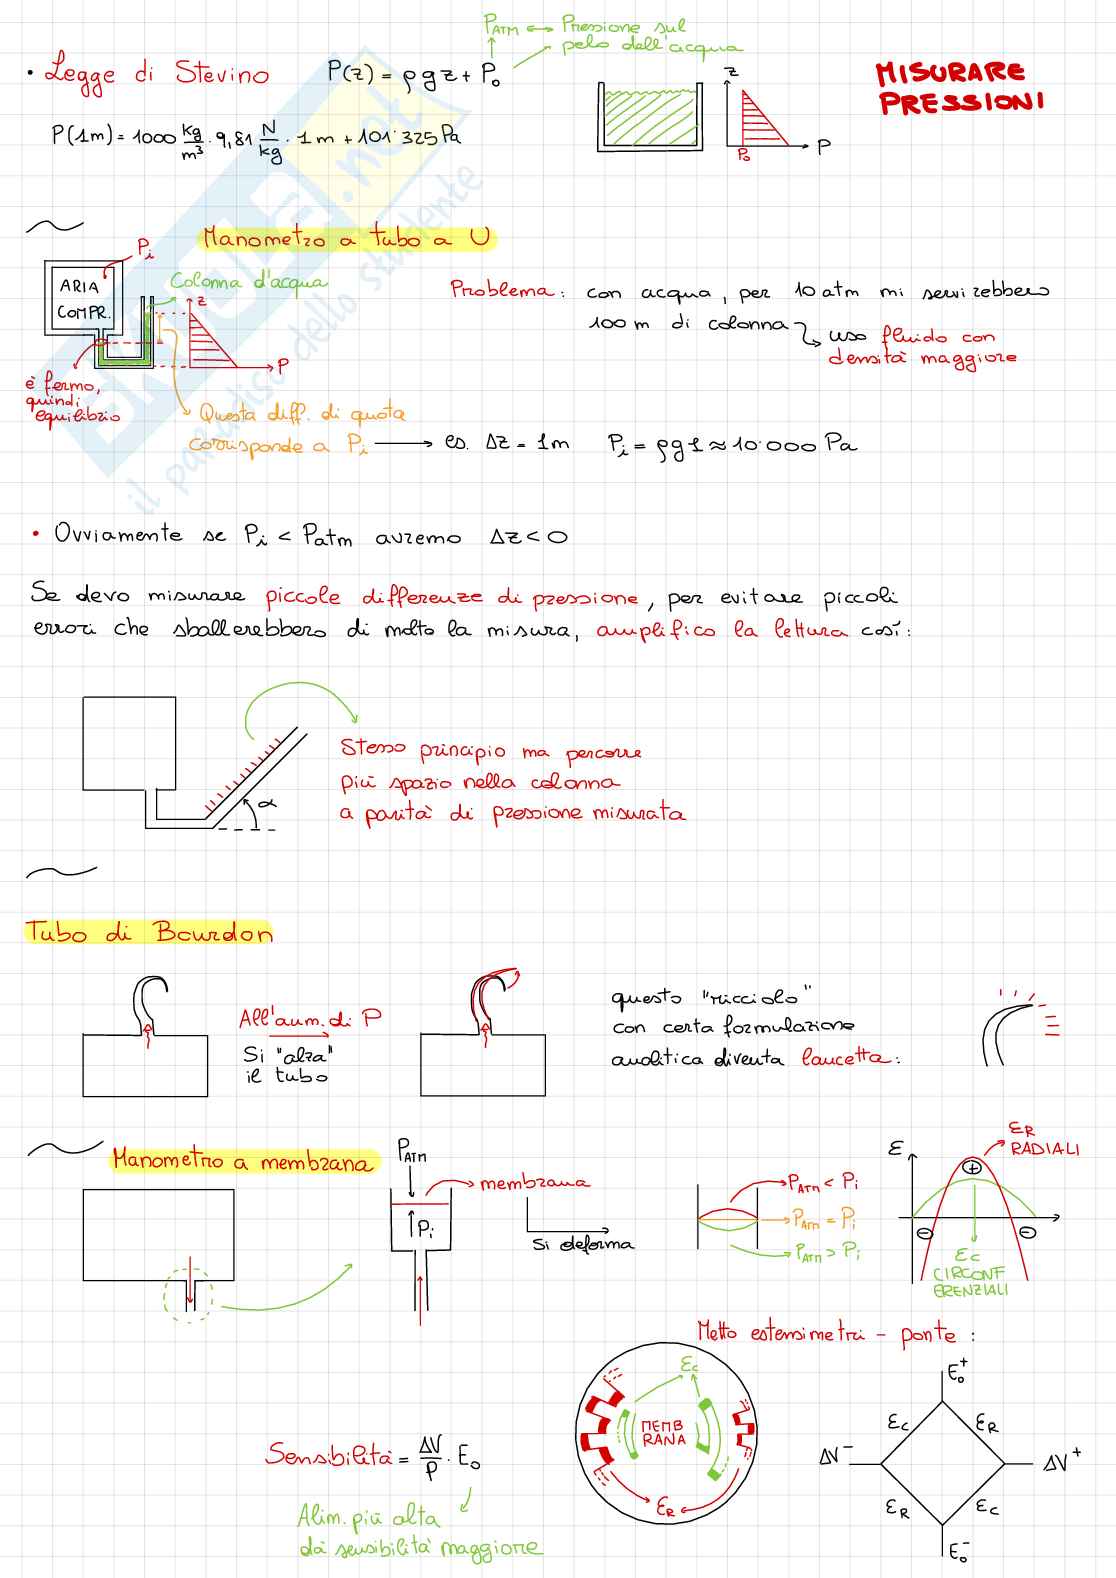 P_ATM ↔ Pressione sul
pelo dell'acqua
• Legge di Stevino P(z) = ρgz + P₀
MISURARE
PRESSIONI
P(1m) = 1000 kg/m³ · 9,81 N/kg · 1m + 101'325 Pa
z
P₀
P
SKUOLA.net
il paradiso dello studente
Manometro a tubo a U
P_i
ARIA
COMPR.
Colonna d'acqua
z
P
è fermo,
quindi
equilibrio
Problema: con acqua, per 10 atm mi servirebbero
100 m di colonna
uso fluido con
densità maggiore
Questa diff. di quota
corrisponde a P_i → es. Δz = 1m P_i = ρg1 ≈ 10'000 Pa
• Ovviamente se P_i < Patm avremo Δz < 0
Se devo misurare piccole differenze di pressione, per evitare piccoli
errori che sballerebbero di molto la misura, amplifico la lettura così:
α
Stesso principio ma percorre
più spazio nella colonna
a parità di pressione misurata
Tubo di Bourdon
All'aum. di P
Si "alza"
il tubo
questo "ricciolo"
con certa formulazione
analitica diventa lancetta:
Manometro a membrana
P_ATM
membrana
P_i
Si deforma
P_ATM < P_i
P_ATM = P_i
P_ATM > P_i
ε
ε_R
RADIALI
+
−
−
ε_C
CIRCONF
ERENZIALI
Metto estensimetri - ponte:
ε_C
MEMB
RANA
ε_R
E₀⁺
ε_C
ε_R
ΔV⁻
ΔV⁺
ε_R
ε_C
E₀⁻
Sensibilità = ΔV/P · E₀
Alim. più alta
dà sensibilità maggiore